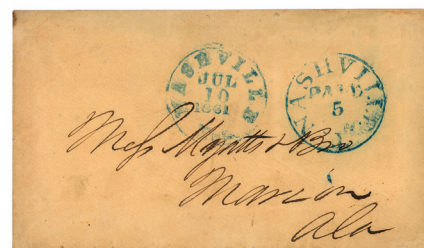 NASHVILLE
JUL
10
1861
NASHVILLE
PAID
5
Mess Myatt & Bro
Marion
Ala